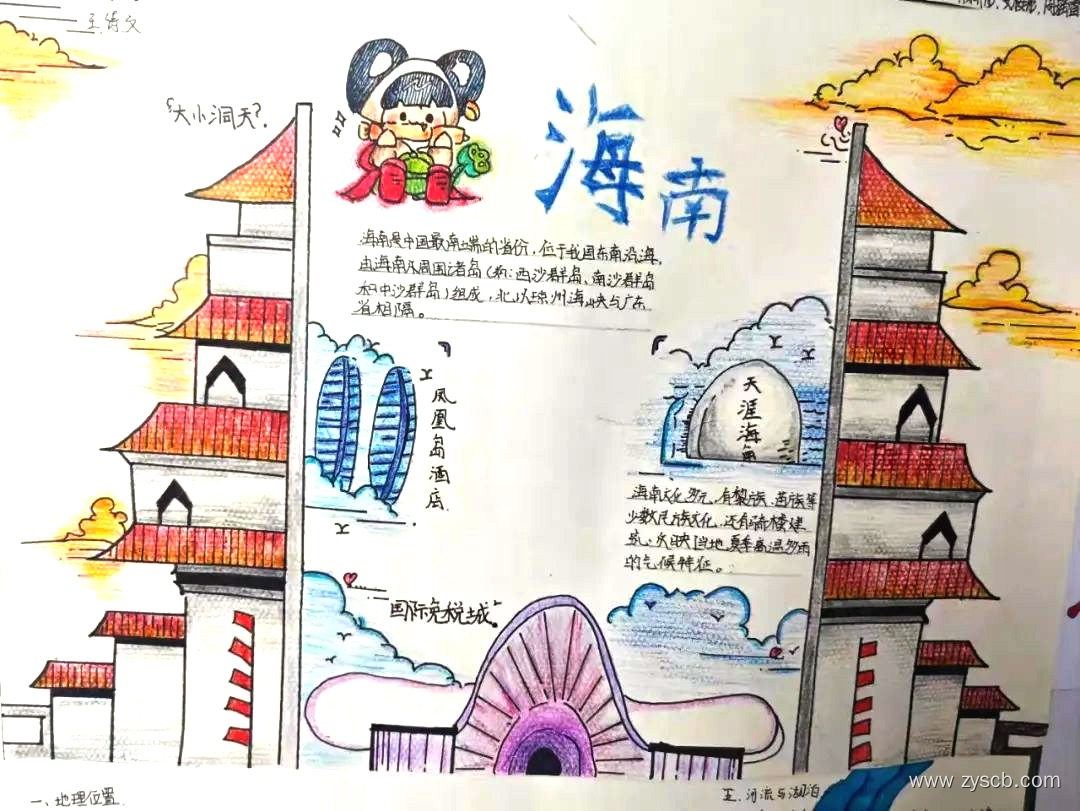 王诗文
大小洞天
海南
海南是中国最南端的省份，位于我国东南沿海，
由海南及周围诸岛（如：西沙群岛、南沙群岛
和中沙群岛）组成，北以琼州海峡与广东
省相隔。
凤凰岛酒店
天涯海角
海南文化多元，有黎族、苗族等
少数民族文化，还有骑楼建
筑，反映当地夏季高温多雨
的气候特征。
国际免税城
一、地理位置
五、河流与湖泊
www.zyscb.com